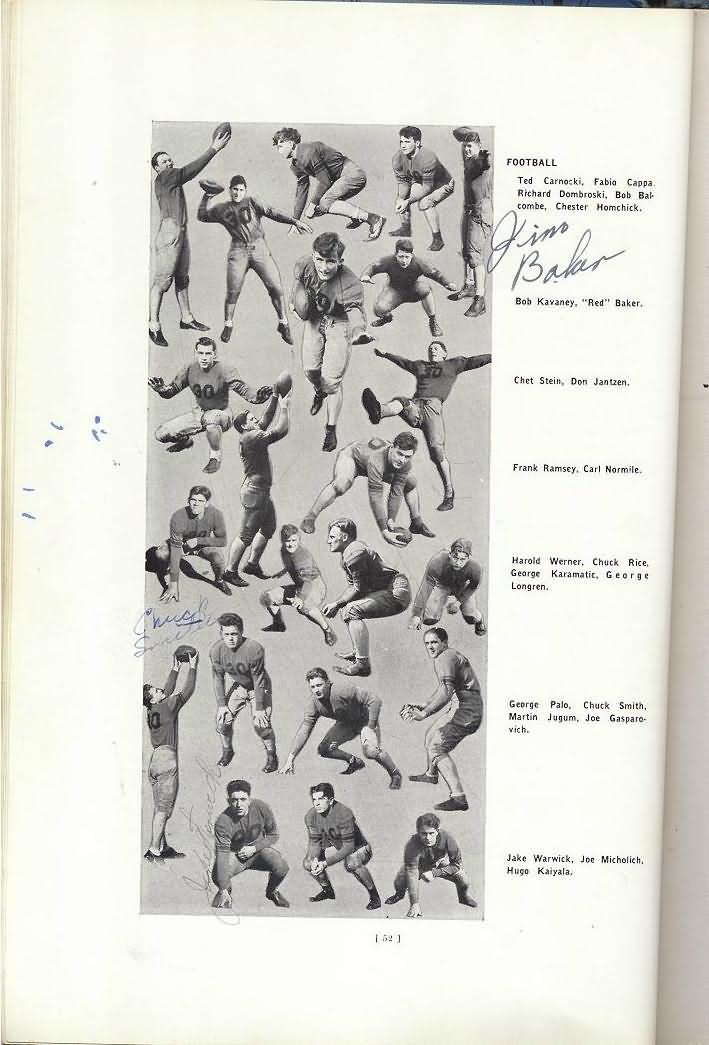 FOOTBALL
Ted Carnocki, Fabio Cappa,
Richard Dombroski, Bob Bal-
combe, Chester Homchick.
Jim
Baker
Bob Kavaney, "Red" Baker.
Chet Stein, Don Jantzen.
Frank Ramsey, Carl Normile.
Harold Werner, Chuck Rice,
George Karamatic, George
Longren.
Chuck
George Palo, Chuck Smith,
Martin Jugum, Joe Gasparo-
vich.
Jake Warwick, Joe Micholich,
Hugo Kaiyala.
[ 52 ]